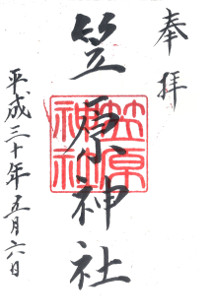 奉拝
笠原神社
笠原神社
平成三十年五月六日